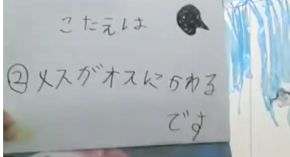 こたえは
②メスがオスにかわる
です